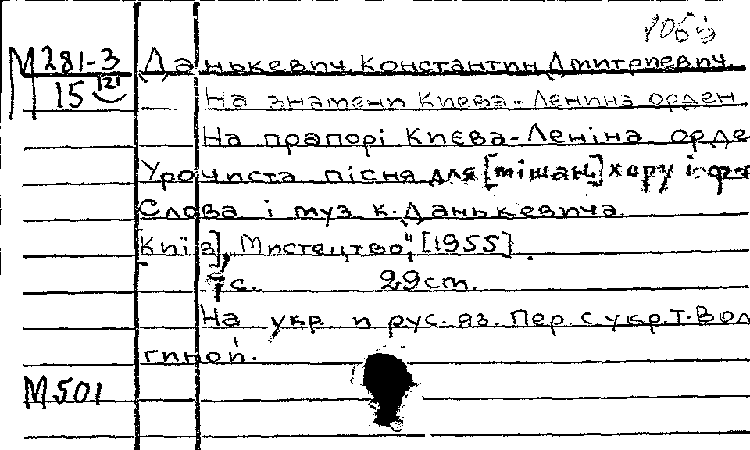 М 281-3 Данькевич, Константин Дмитриевич.
15
На знамени Киева - Ленина орден.
На прапорі Києва - Леніна орде
Урочиста пісня для [мішан.] хору і ф-
Слова і муз К. Данькевича.
[Київ], "Мистецтво", [1955].
7 с. 29 cm.
На укр и рус. яз. Пер. с укр. Т. Вол
гиной.
М 501